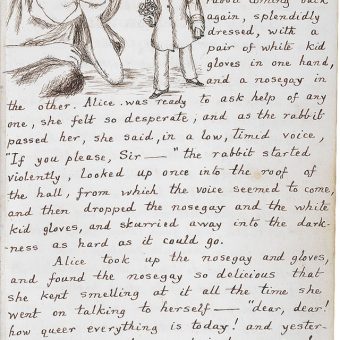 rabbit coming back
again, splendidly
dressed, with a
pair of white kid
gloves in one hand,
and a nosegay in
the other. Alice was ready to ask help of any
one, she felt so desperate, and as the rabbit
passed her, she said, in a low, timid voice,
"If you please, Sir—" the rabbit started
violently, looked up once into the roof of
the hall, from which the voice seemed to come,
and then dropped the nosegay and the white
kid gloves, and skurried away into the dark-
-ness as hard as it could go.
Alice took up the nosegay and gloves,
and found the nosegay so delicious that
she kept smelling at it all the time she
went on talking to herself— "dear, dear!
how queer everything is today! and yester-